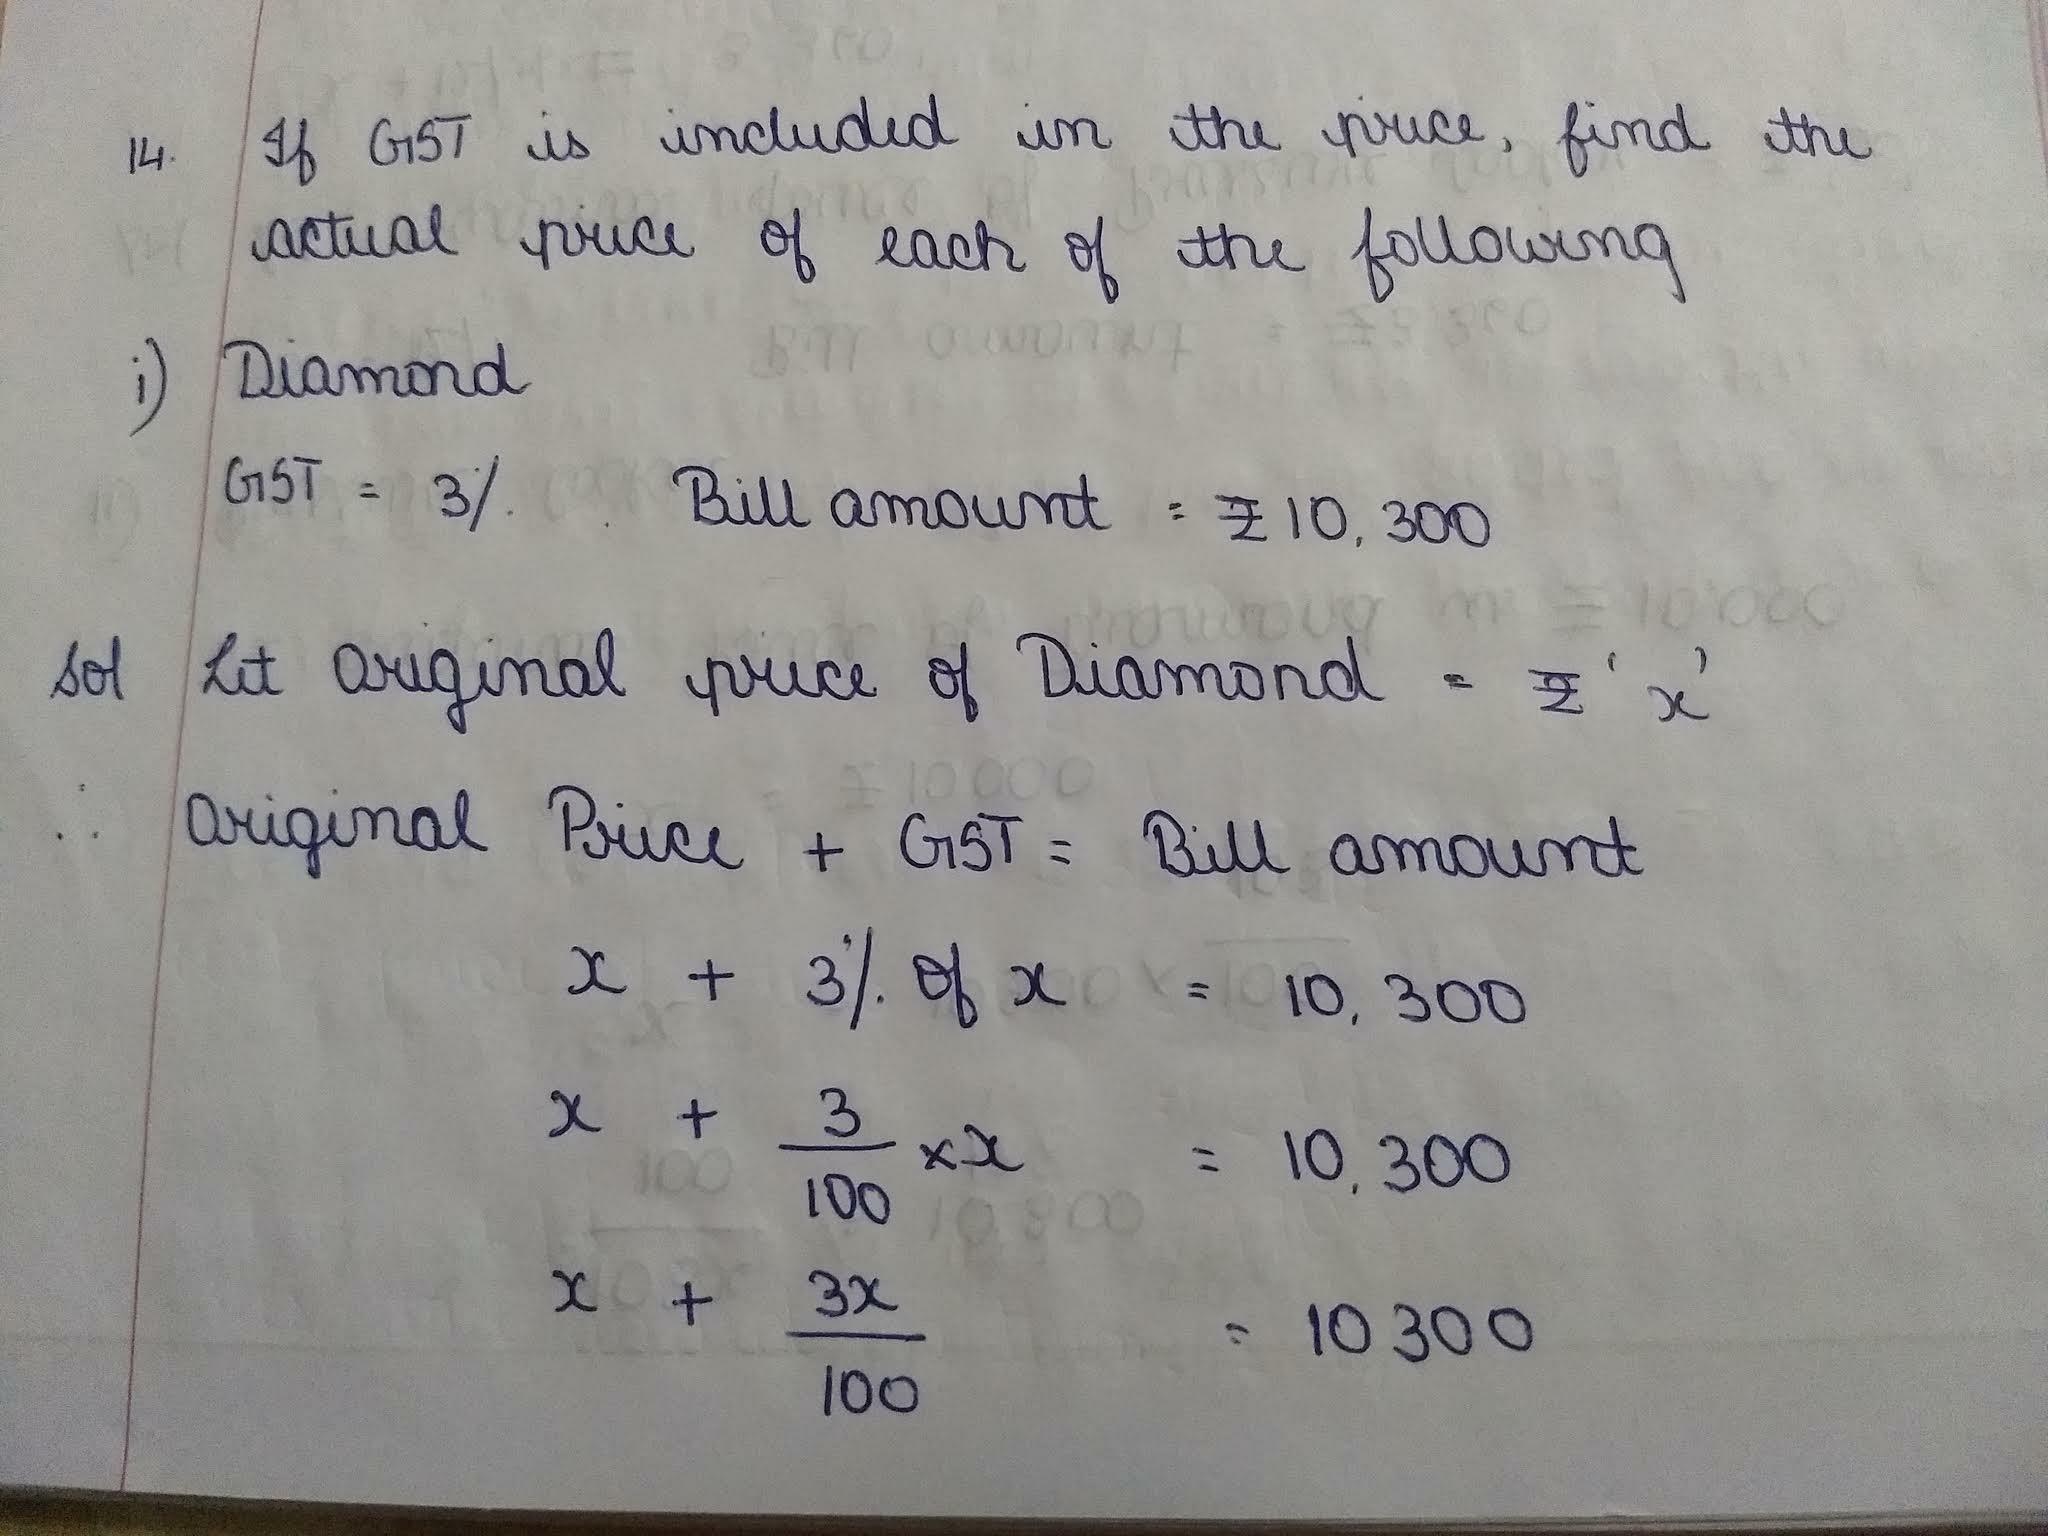 14. If GST is included in the price, find the
actual price of each of the following
i) Diamond
GST = 3%. Bill amount = ₹10,300
Sol Let original price of Diamond = ₹ 'x'
∴ Original Price + GST = Bill amount
x + 3% of x = 10,300
x + 3/100 × x = 10,300
x + 3x/100 = 10300